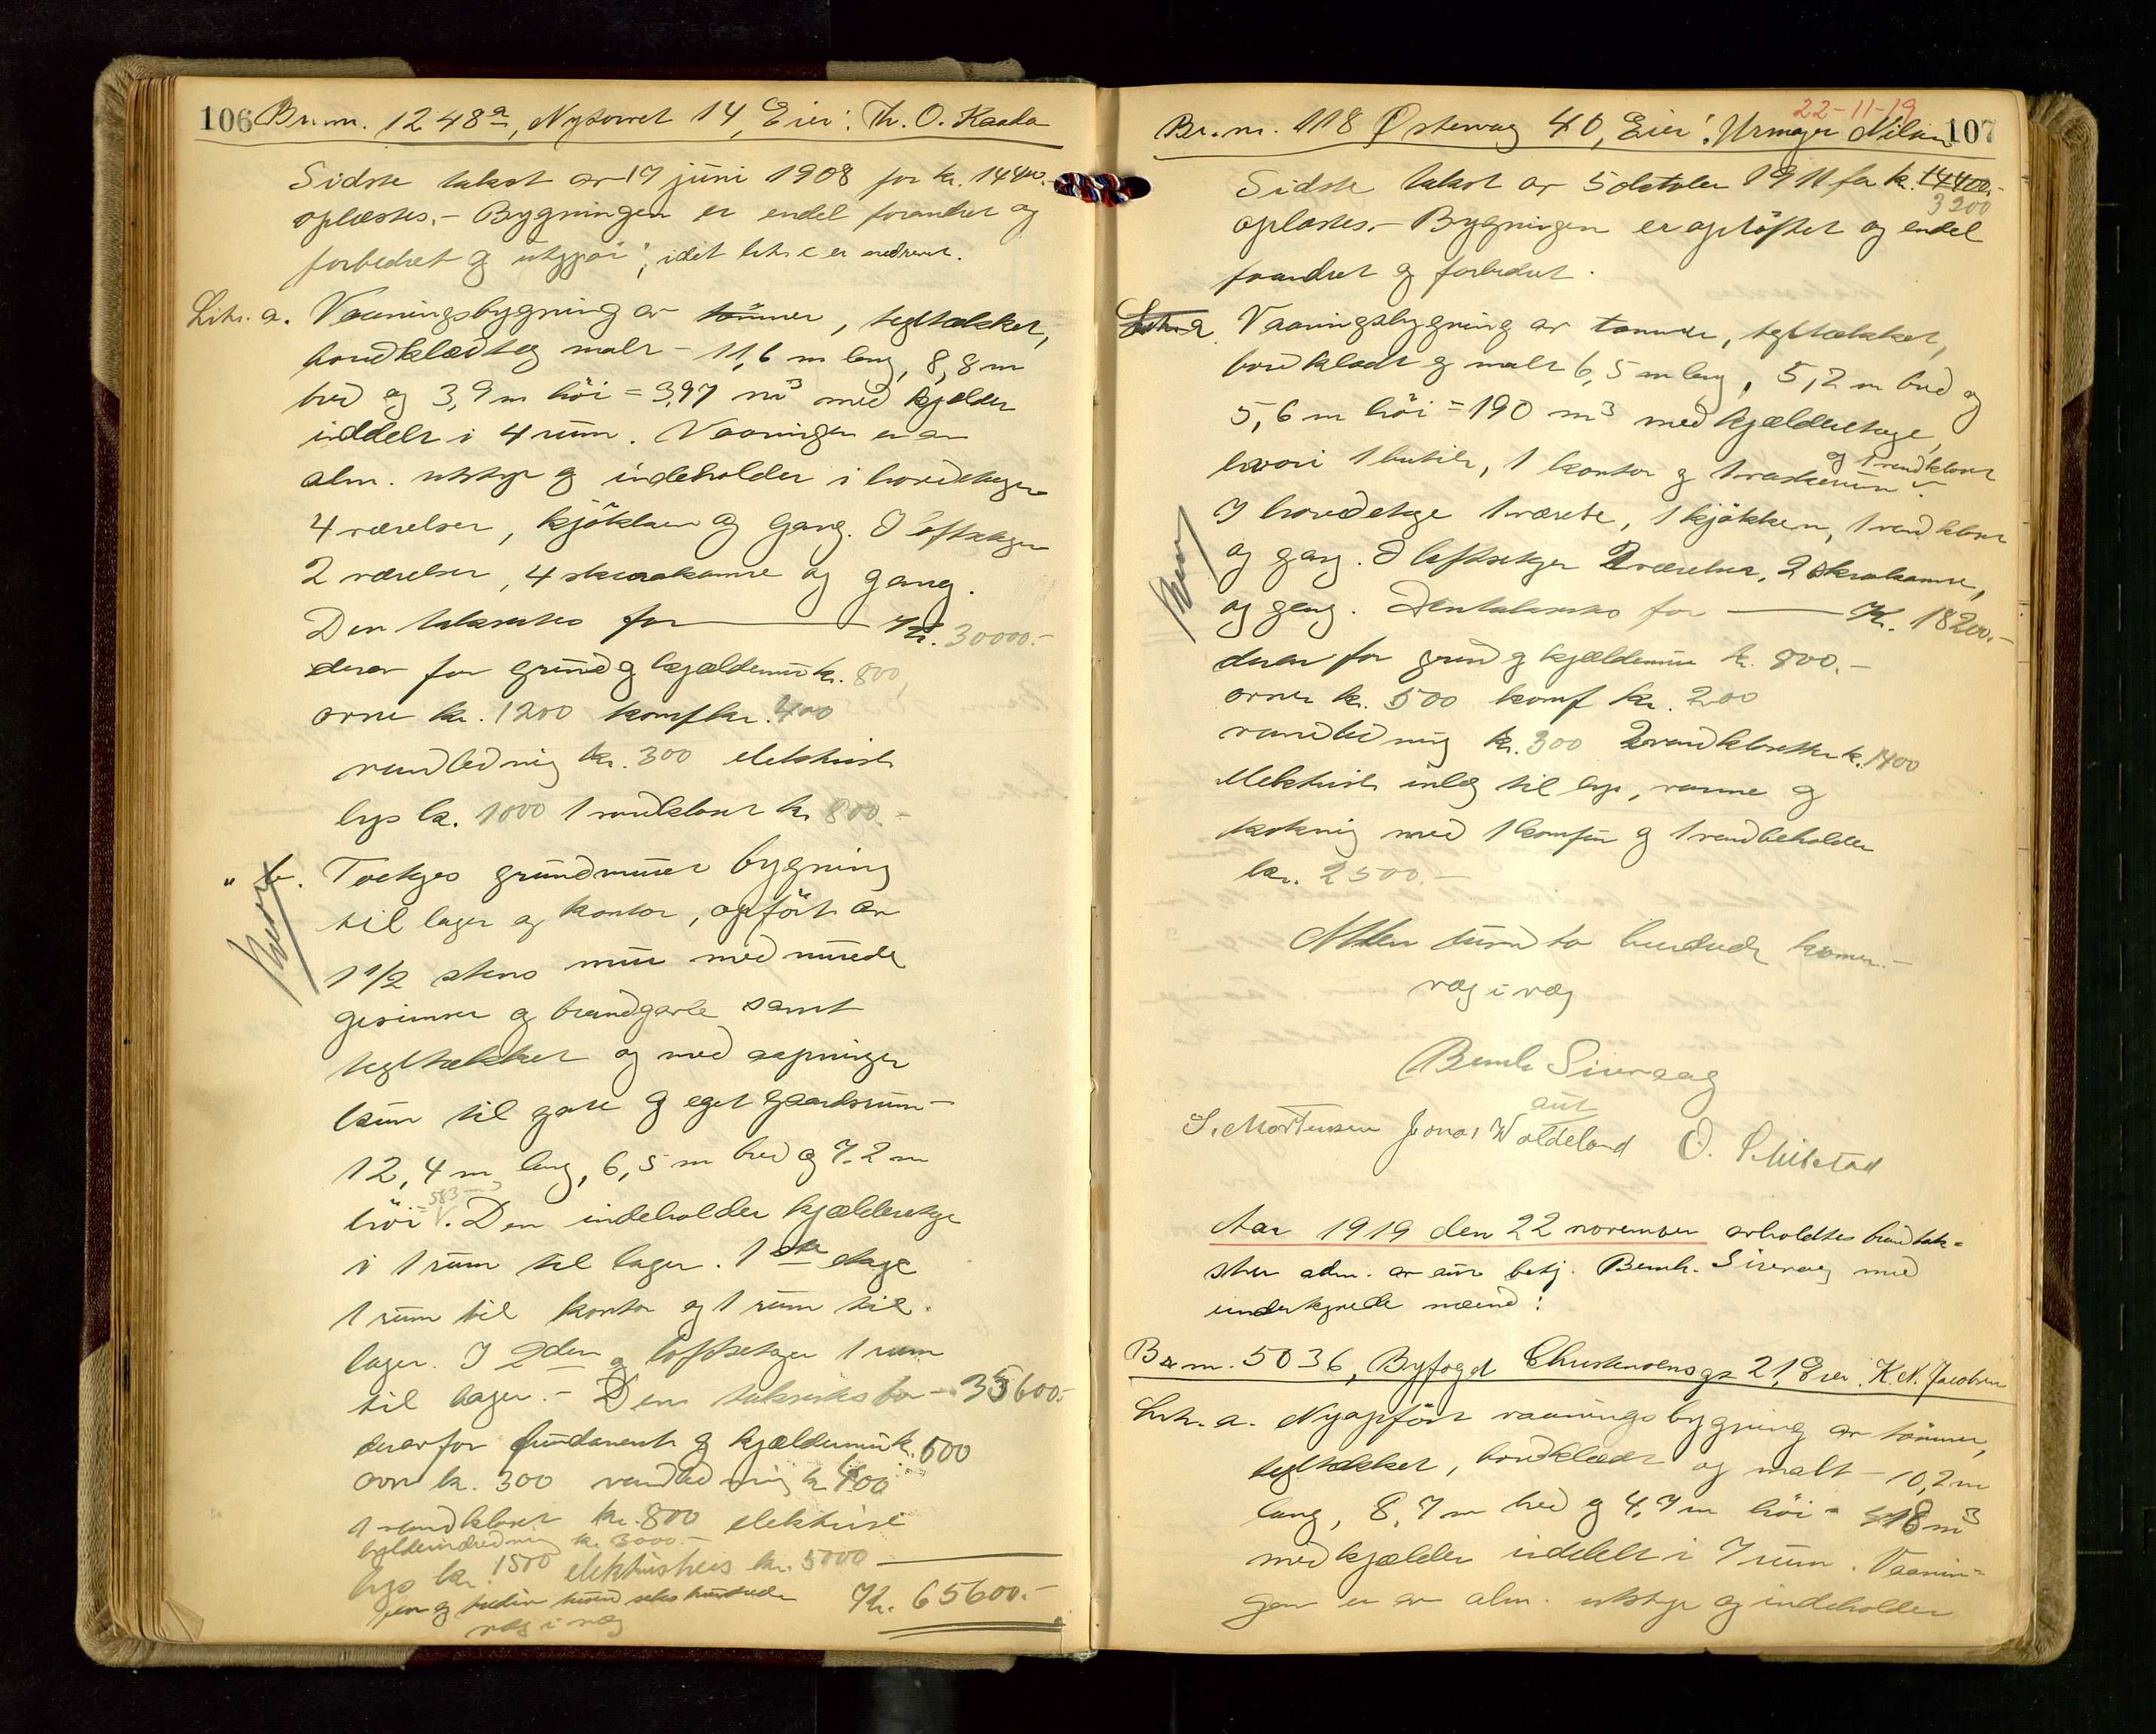 106 Br.nr. 1248a, Nytorvet 14, Eier: Th. O. Kaada
Sidste takst av 17 juni 1908 for kr. 14400.-
oplæstes.- Bygningen er endel forandret og
forbedret og utgjør; idet litr. c er nedrevet.
Litr. a. Vaaningsbygning av tømmer, tegltækket,
bordklædt og malt - 11,6 m lang, 8,8 m
bred og 3,9 m höi = 397 m3 med kjelder
inddelt i 4 rum. Vaaningen er av
alm. utstyr og indeholder i hovedetagen
4 værelser, kjökken og gang. I loftsetagen
2 værelser, 4 skraakamre og gang.
Den taksertes for Kr. 30000.-
derav for grund og kjældermur kr. 800,
ovne kr. 1200 komf kr. 400
vandledning kr. 300 elektrisk
lys kr. 1000 1 vandklosett kr. 800.-
" b. Toetages grundmuret bygning
til lager og kontor, opfört av
1 1/2 stens mur med murede
gesimser og brandgavle samt
tegltækket og med aapninger
kun til gate og eget gaardsrum -
12,4 m lang, 6,5 m bred og 7,2 m
höi = 583 m3. Den indeholder kjælderetage
i 1 rum til lager. 1ste etage
1 rum til kontor og 1 rum til
lager. I 2den og loftsetager 1 rum
til lager.- Den taksertes for - 35600.-
derav for fundament og kjældermur k. 500
ovn kr. 300 vandledning kr 400
1 vandklosett kr. 800 elektrisk
hyldeindredning kr. 3000.-
lys kr. 1500 elektrisk heis kr. 5000
fem og tredive tusind seks hundrede Kr. 65600.-
væg i væg
22-11-19
Br.nr. 118 Østervaag 40, Eier: Urmager Nilsen 107
Sidste takst av 5 oktober 1911 for kr. 14400.-
3200
oplæstes.- Bygningen er opløftet og endel
forandret og forbedret.
Litr. a. Vaaningsbygning av tømmer, tegltækket,
bordklædt og malt 6,5 m lang, 5,2 m bred og
5,6 m höi = 190 m3 med kjælderetage,
hvori 1 butik, 1 kontor og 1 vaskerum og 1 vandklosett
I hovedetage 1 værelse, 1 kjökken, 1 vandklosett
og gang. I loftsetagen 2 værelser, 2 skraakamre,
og gang. Den taksertes for Kr. 18200.-
derav for grund og kjældermur kr. 800.-
ovner kr. 500 komf kr. 200
vandledning kr. 300 2 vandklosetter k. 1400
elektrisk indlæg til lys, varme og
kokning med 1 komfur og 1 vandbeholder
kr. 2500.-
Atten tusind to hundrede kroner.-
væg i væg
Bernh Sirevaag
aut
S. Mortensen Jonas Woldeland O. Silstad
Aar 1919 den 22 november avholdtes brandtak-
ster adm. av aut betj. Bernh. Sirevaag med
undertegnede mænd:
Br.nr. 5036, Byfogd Christensensgt 21, Eier K. N. Jacobsen
Litr. a. Nyopfört vaaningsbygning av tömmer,
tegltækket, bordklædt og malt - 10,2 m
lang, 8,7 m bred og 4,7 m höi = 418 m3
med kjælder inddelt i 7 rum. Vaanin-
gen er av alm. utstyr og indeholder